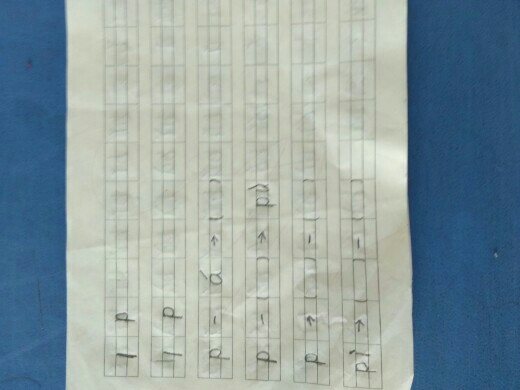 p
p
p - á → ( )
p - ( ) → pù
p → ( ) - ( )
pì → ( ) - ( )